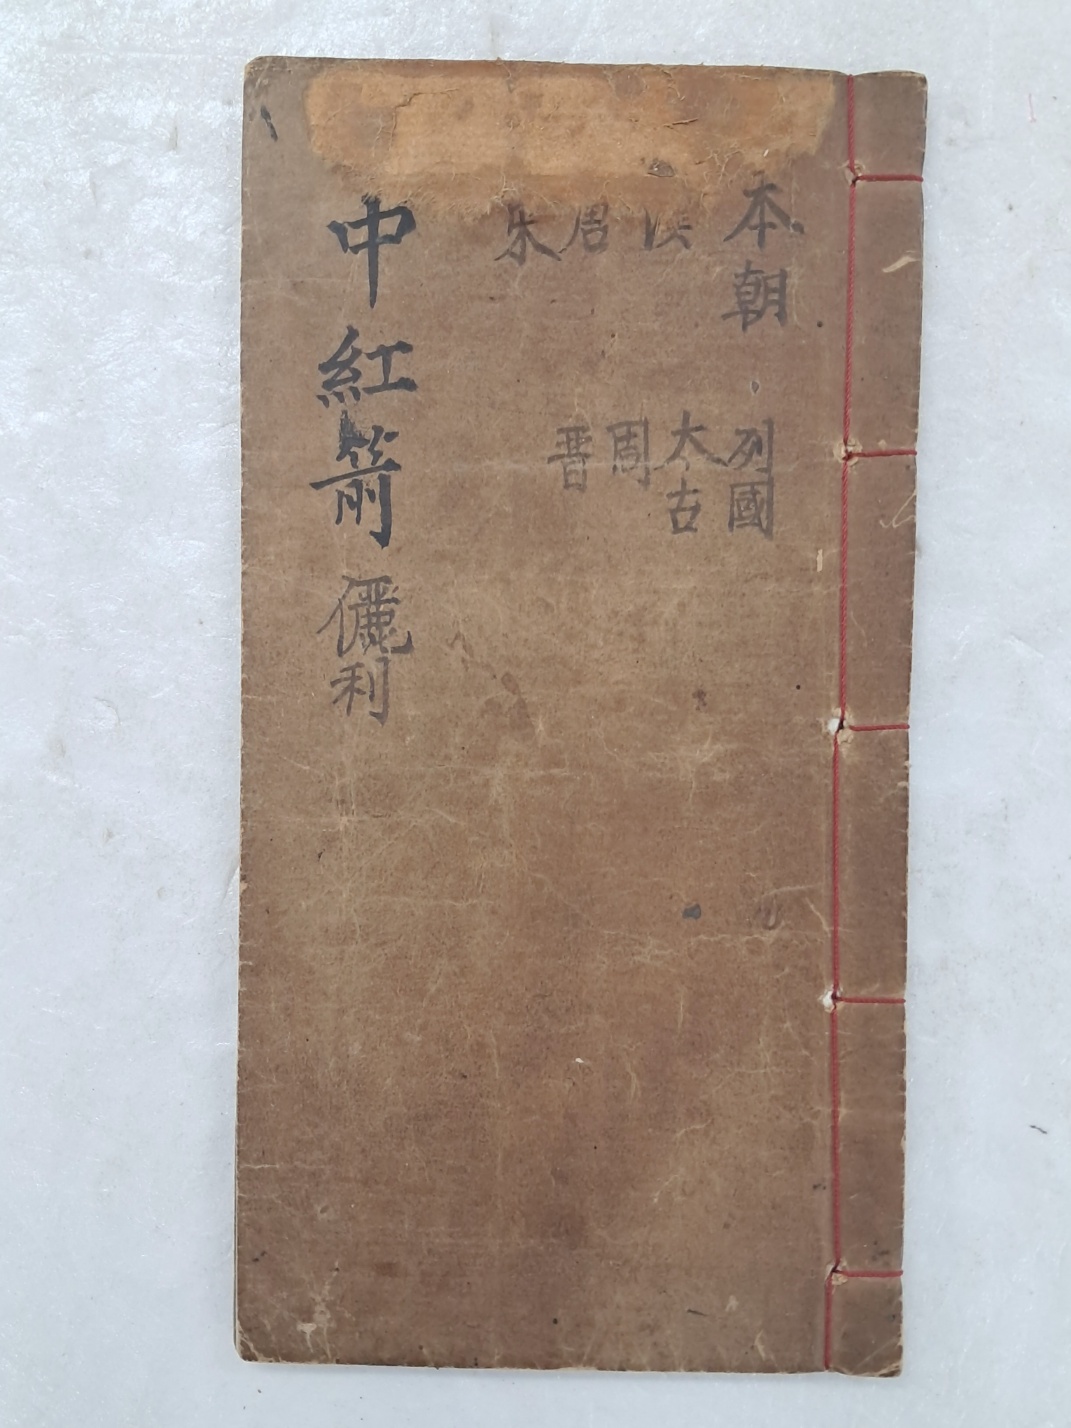 本朝
漢
周
朱
列國
太古
周
晋
中紅箭
儷利